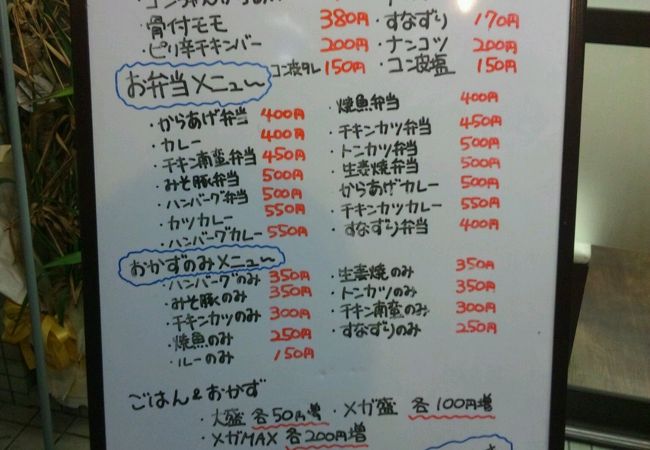 ・骨付モモ 380円 ・すなずり 170円
・ピリ辛チキンバー 200円 ・ナンコツ 200円
コン皮タレ 150円 ・コン皮塩 150円
お弁当メニュー
・からあげ弁当 400円 ・焼魚弁当 400円
・カレー 400円 ・チキンカツ弁当 450円
・チキン南蛮弁当 450円 ・トンカツ弁当 500円
・みそ豚弁当 500円 ・生姜焼弁当 500円
・ハンバーグ弁当 500円 からあげカレー 500円
・カツカレー 550円 ・チキンカツカレー 550円
・ハンバーグカレー 550円 ・すなずり弁当 400円
おかずのみメニュー
・ハンバーグのみ 350円 ・生姜焼のみ 350円
・みそ豚のみ 350円 ・トンカツのみ 350円
・チキンカツのみ 300円 ・チキン南蛮のみ 300円
・焼魚のみ 250円 ・すなずりのみ 250円
・ルーのみ 150円
ごはん&おかず
・大盛 各50円増 ・メガ盛 各100円増
・メガMAX 各200円増